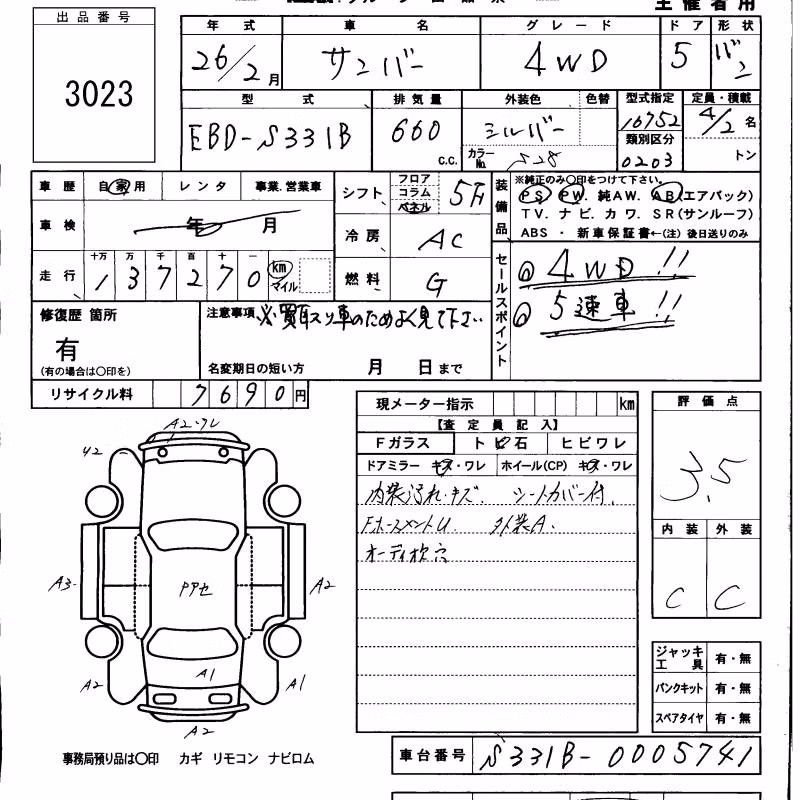 出品番号
3023
主催者用
年式 車名 グレード ドア 形状
26/2月 サンバー 4WD 5 バン
型式 排気量 外装色 色替 型式指定 定員・積載
EBD-S331B 660 c.c. シルバー 16752 4/2名
カラーNo. S28 類別区分 0203 トン
車歴 自家用 レンタ 事業.営業車
シフト フロア コラム パネル 5F
装備品
※純正のみ〇印をつけて下さい。
PS PW. 純AW. AB(エアバック)
TV. ナビ. カワ. SR(サンルーフ)
ABS ・ 新車保証書←(注) 後日送りのみ
車検 年 月
冷房 AC
走行 十万 万 千 百 十 一
1 3 7 2 7 0 km マイル
燃料 G
セールスポイント
◎ 4WD!!
◎ 5速車!!
修復歴 箇所
有
(有の場合は〇印を)
注意事項 ※買取り車のためよく見て下さい
名変期日の短い方 月 日まで
リサイクル料 7690円
現メーター指示 km
【査定員記入】
Fガラス トビ石 ヒビワレ
ドアミラー キズ・ワレ ホイール(CP) キズ・ワレ
内装汚れ・キズ. シートカバー付.
外装A.
オーディオ欠 穴
評価点
3.5
内装 外装
C C
ジャッキ工具 有・無
パンクキット 有・無
スペアタイヤ 有・無
A2・ワレ
A3
A2
A2
A1
A1
A2
事務局預り品は〇印 カギ リモコン ナビロム
車台番号 S331B-0005741